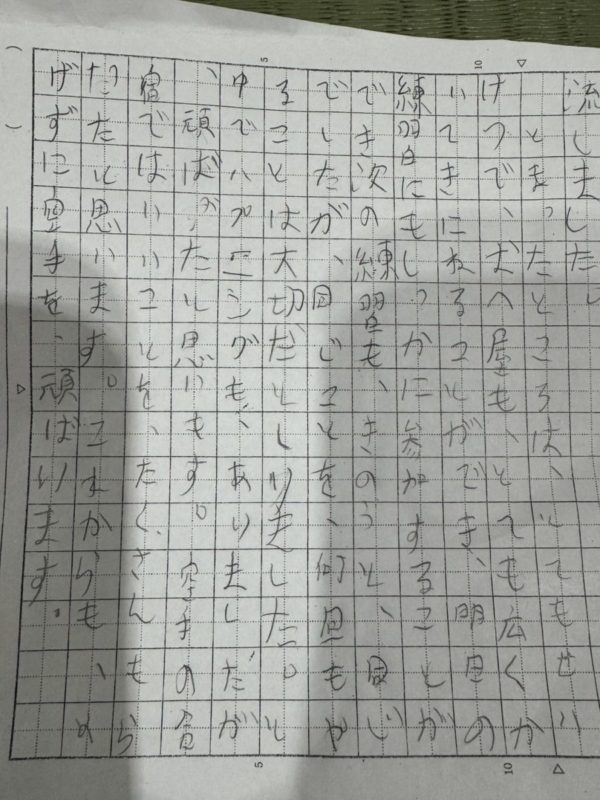 流しました。
とまったところは、とてもせい
けつで、おへ屋も、とても広くか
いてきにねることができ、明日の
練習にもしっかに参加することが
でき次の練習も、きのうと、同じ
でしたが、同じことを、何回もや
ることは大切だとしりました。と
ゆでハプニングも、ありましたが
、頑ばったと思います。空手の合
宿ではいいことを、たくさんもら
ったと思います。これからも、め
げずに空手を、頑ばります。
5
10
5
10